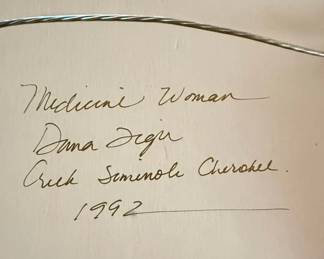 Medicine Woman
Dana Tiger
Creek Seminole Cherokee.
1992